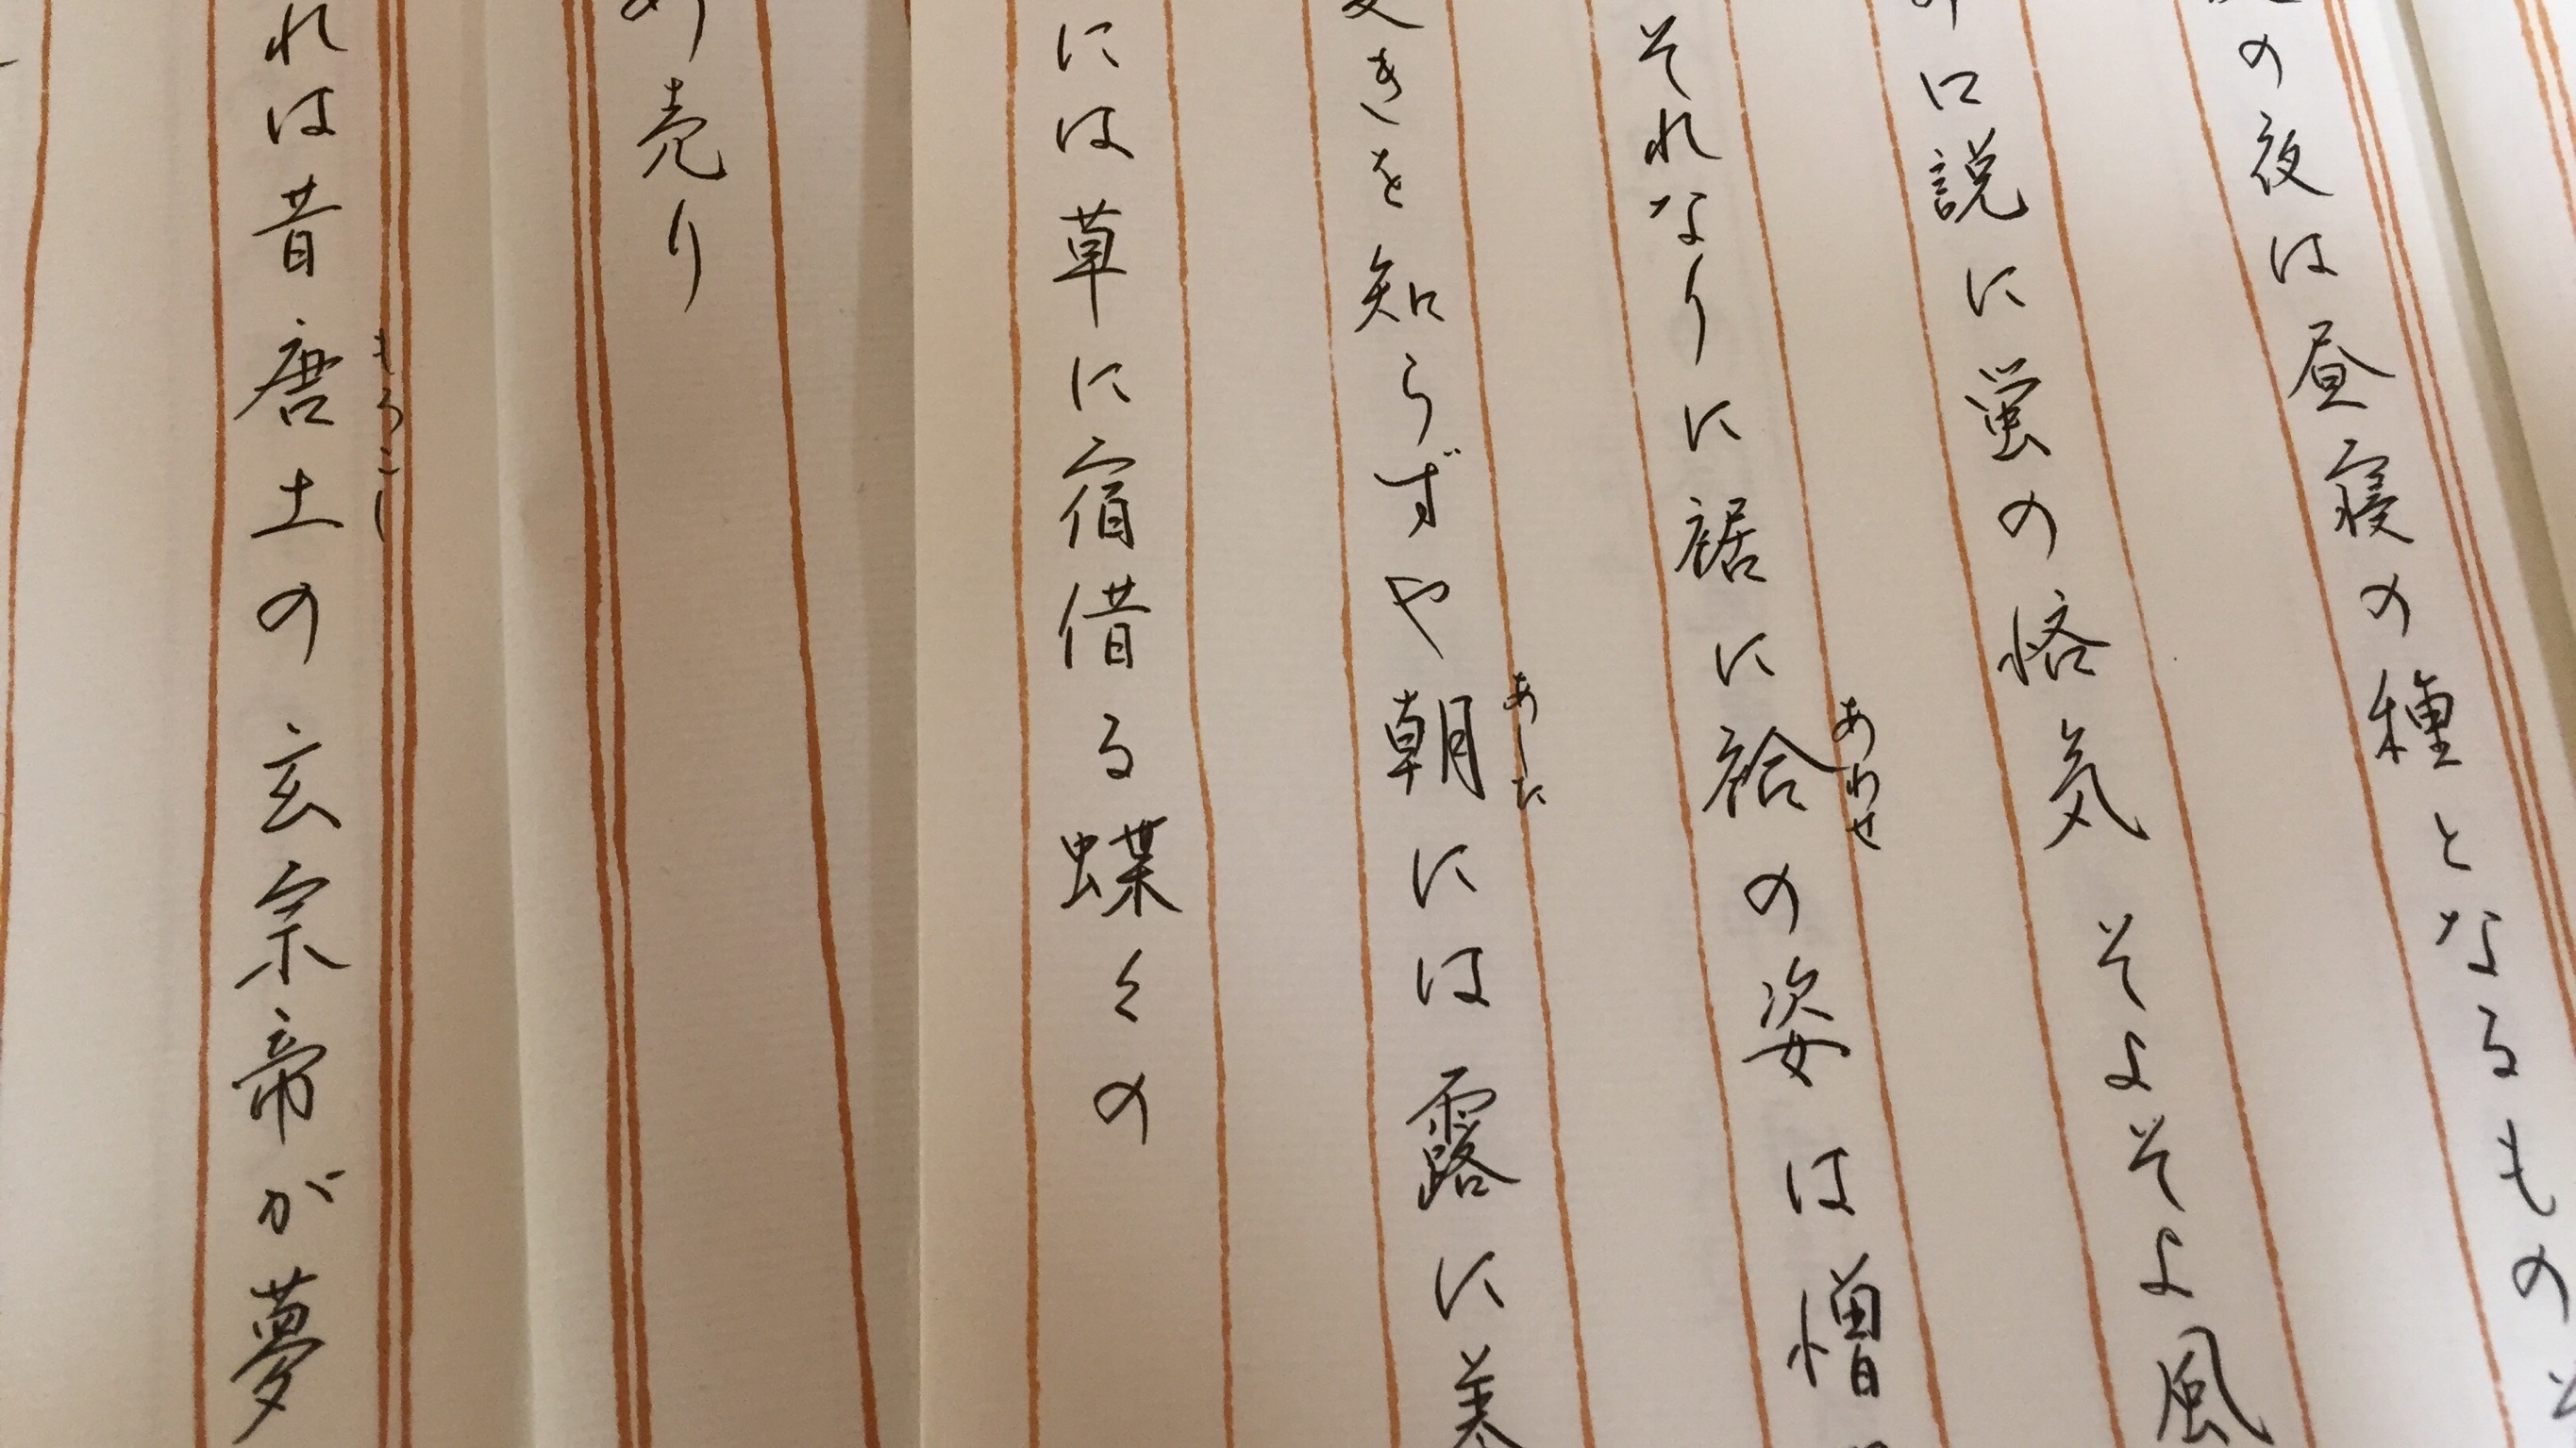 の夜は昼寝の種となるものそ
口説に蛍の悋気そよそよ風
それなりに裾に袷の姿は憎
あわせ
きを知らずや朝には露に
あした
には草に宿借る蝶々の
売り
れは昔唐土の玄宗帝が夢
もろこし